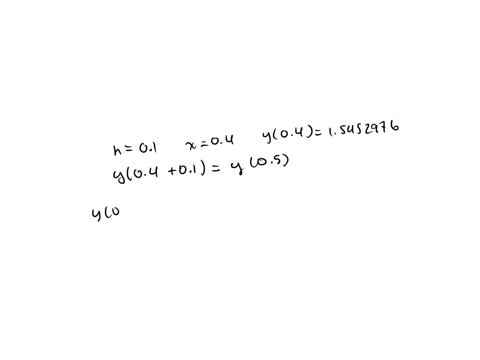 h = 0.1 x = 0.4 y(0.4) = 1.5452976
y(0.4 + 0.1) = y (0.5)
y(0